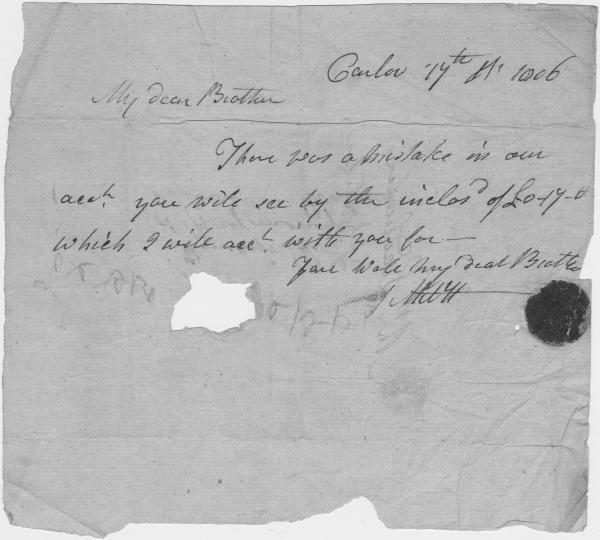 Carlow 17th 1806
My dear Brother
There was a mistake in our
acct. you will see by the inclosd of £0-17-0
which I will acct. with you for—
Fare Well My dear Brother